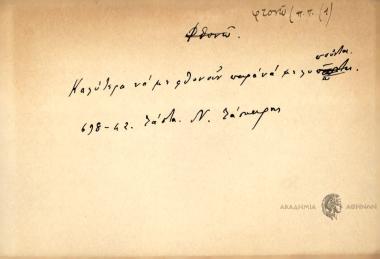 φτονῶ (π.π. (1)
Φθονῶ.
Καλύτερα νά με φθονοῦν παρά νά με λυποῦνται.
698-42. Σάστα. Ν.
ΑΚΑΔΗΜΙΑ ΑΘΗΝΩΝ